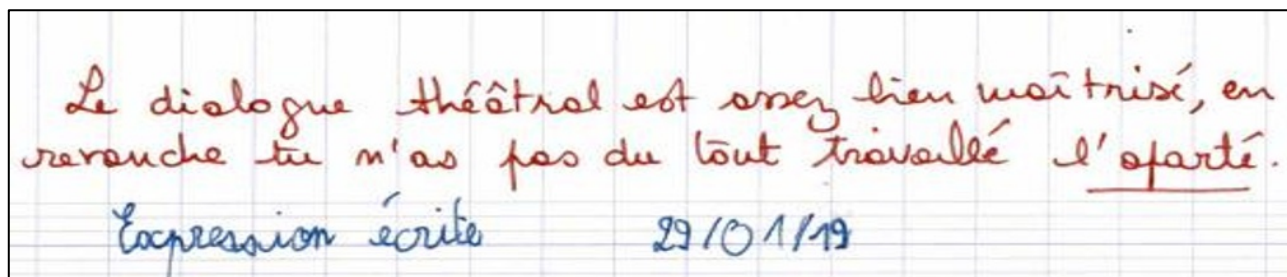 Le dialogue théâtral est assez bien maîtrisé, en
revanche tu n'as pas du tout travaillé l'aparté.
Expression écrite 29/01/19